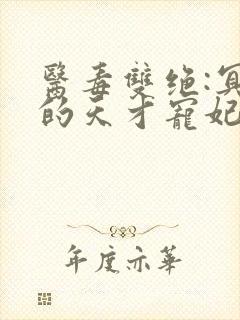 醫毒雙绝:冥
的天才寵妃
年度亦華